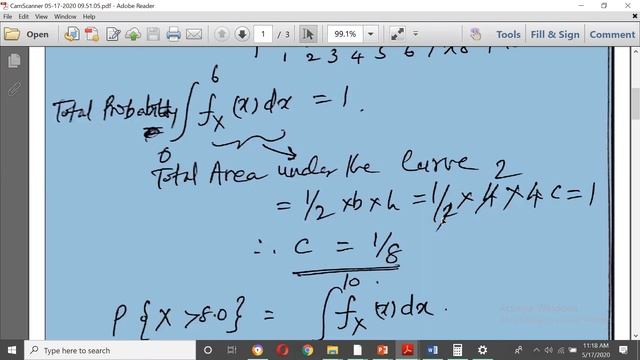 CamScanner 05-17-2020 09.51.05.pdf - Adobe Reader
File Edit View Window Help
Open 1 / 3 99.1% Tools Fill & Sign Comment
1 1 2 3 4 5 6 7 8
Total Probability ∫₀⁶ fₓ(x) dx = 1.
Total Area under the Curve
= 1/2 × b × h = 1/2 × 4 × 4 c = 1
2
∴ C = 1/8
P { X > 8.0 } = ∫¹⁰ fₓ(x) dx.
Activate Windows
Type here to search
11:18 AM
5/17/2020